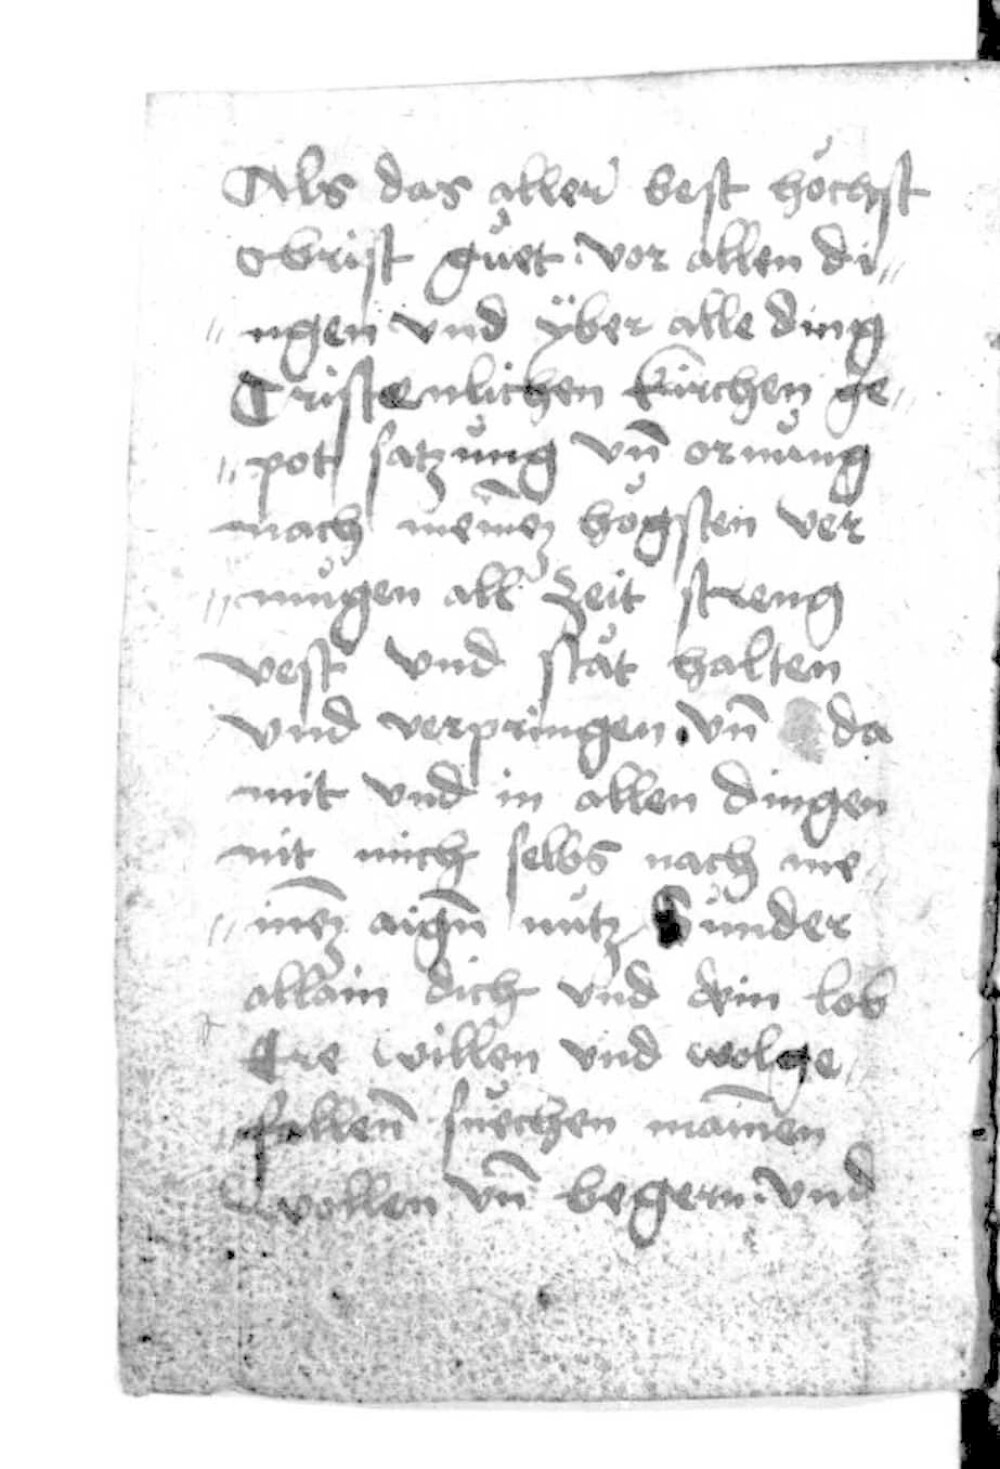 Als das aller best höchst
obrist guet. vor allen di„
„ngen vnd über alle ding
Cristenlichen kirchen ge„
„pot satzung vn̄ ornung
nach meinē högsten ver
„mügen all zeit streng
vest vnd stät halten
vnd verpringen. vn̄ da
mit vnd in allen dingen
nit mich selbs nach me„
„inē aigū nutz Sunder
allain dich vnd dein lob
Ere willen vnd wolge„
„fallen̄ suechen mainēn
wollen vn̄ begern. vnd